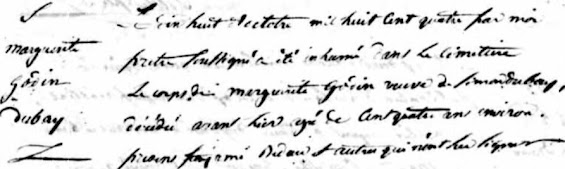 S
marguerite
Godin
Dubay
Le dix huit d'octobre mil huit cent quatre par moi
pretre soussigné a été inhumé dans le cimetiere
le corps de marguerite Godin veuve de Simon dubay,
décédé avant hier agé de cent quatre ans environ.
présens et autres qui n'ont su signer